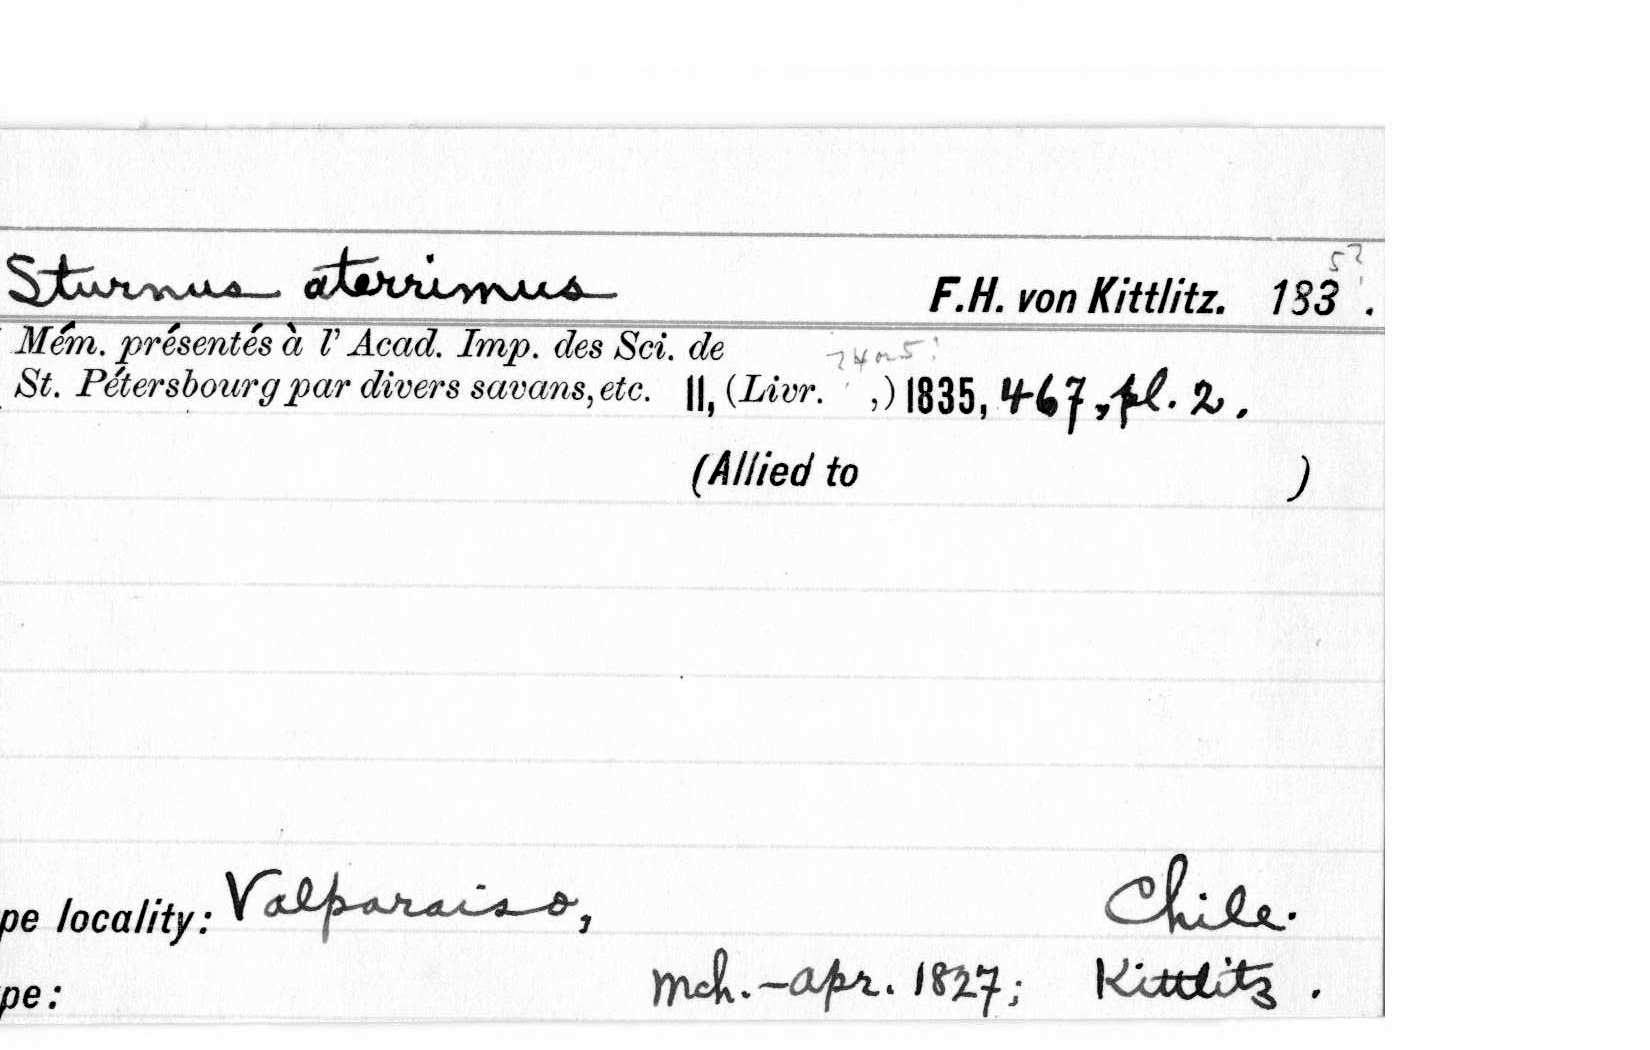 5?
Sturnus aterrimus F.H. von Kittlitz. 183 .
Mém. présentés à l' Acad. Imp. des Sci. de
? 4 or 5?
St. Pétersbourg par divers savans, etc. II, (Livr. ,) 1835, 467, pl. 2.
(Allied to )
pe locality: Valparaiso, Chile.
pe: Mch.-Apr. 1827; Kittlitz.